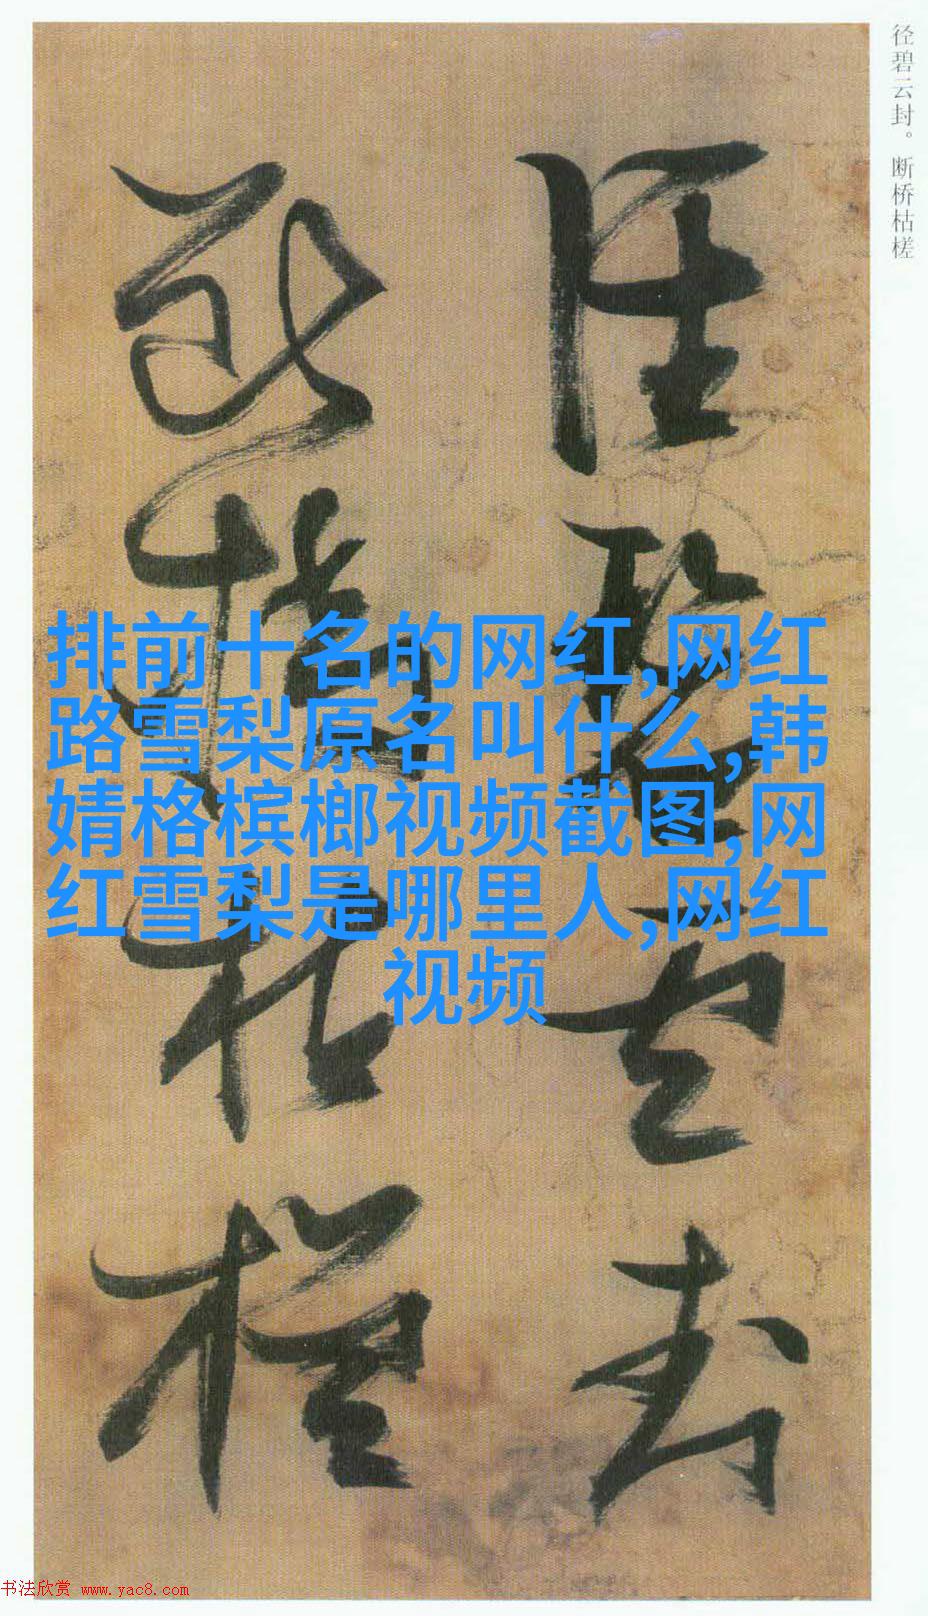 径碧云封。断桥枯槎
径碧云封
断桥枯槎
排前十名的网红,网红
路雪梨原名叫什么,韩
婧格槟榔视频截图,网
红雪梨是哪里人,网红
视频
书法欣赏 www.yac8.com